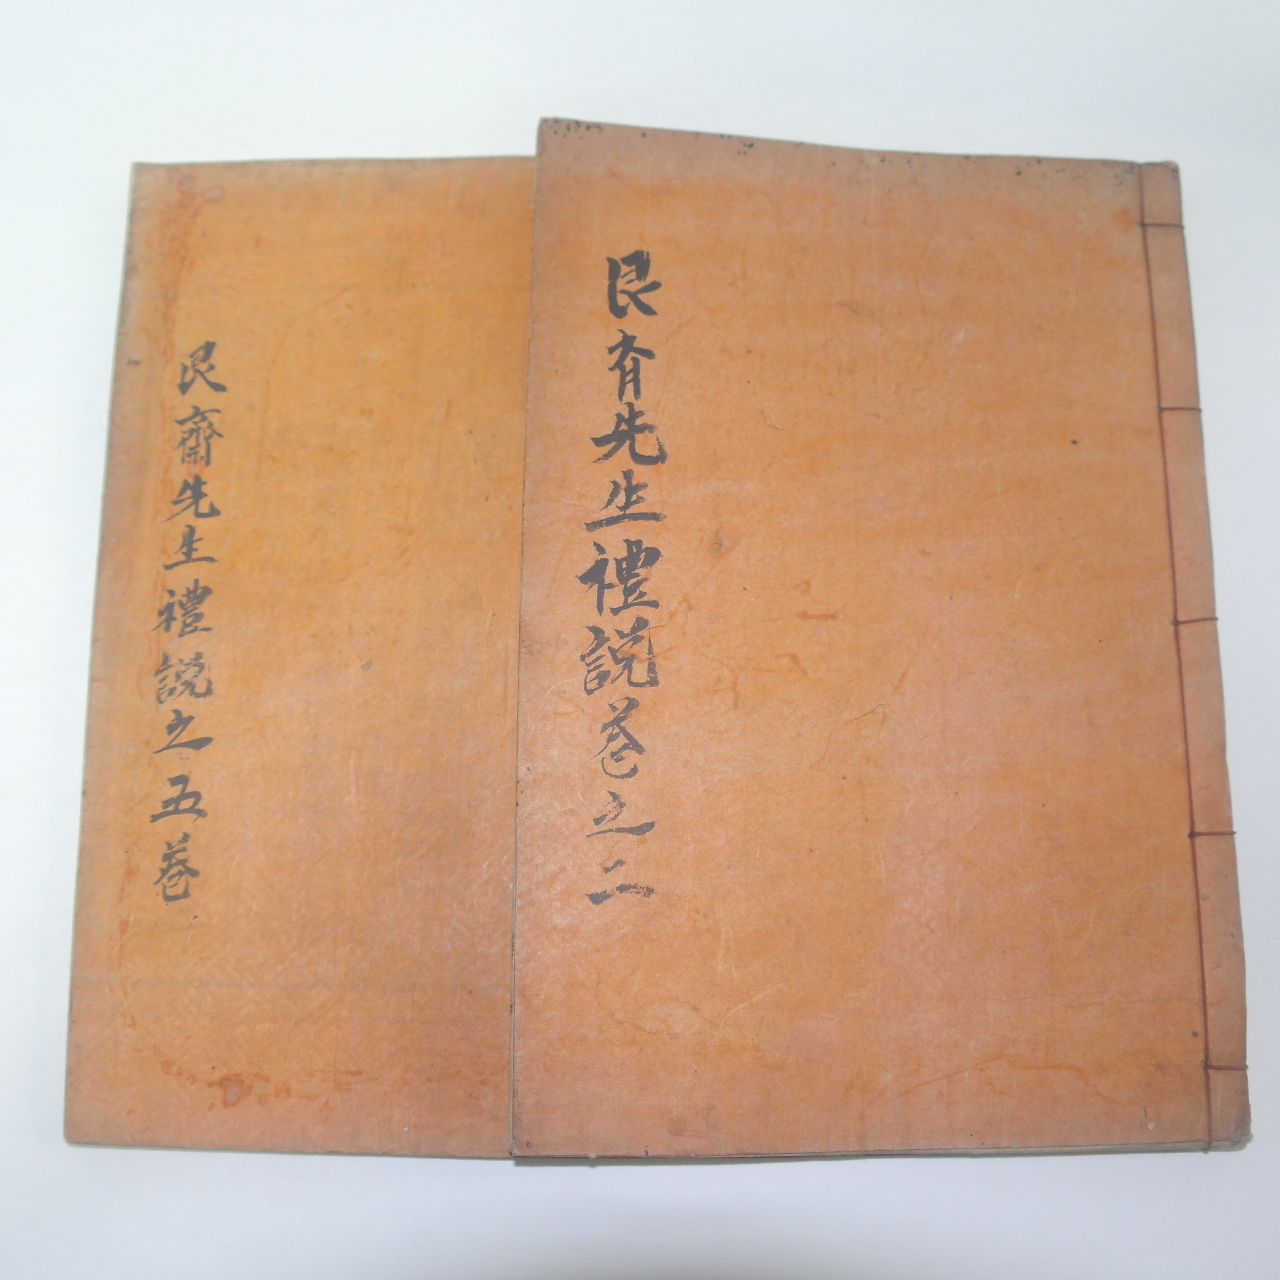 艮斋先生禮說卷之二
艮齋先生禮說之五卷